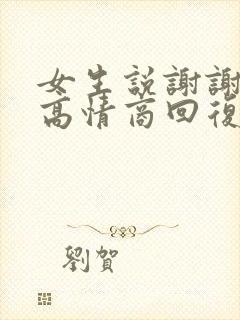 女生説謝謝
高情商回復
劉賀